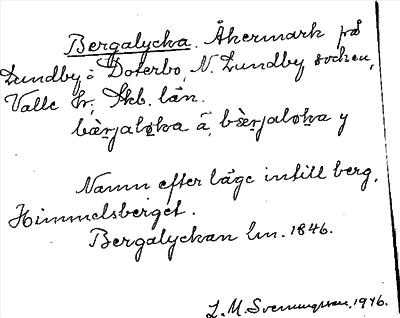 Bergalycka. Åkermark på
Lundby i Doterbo, N. Lundby socken,
Valle hr, Skb. län.
bæ̀rjaløka ä, bæ̀rjaløka y
Namn efter läge intill berg,
Himmelsberget.
Bergalyckan lm. 1846.
L. M. Svenungsson, 1946.